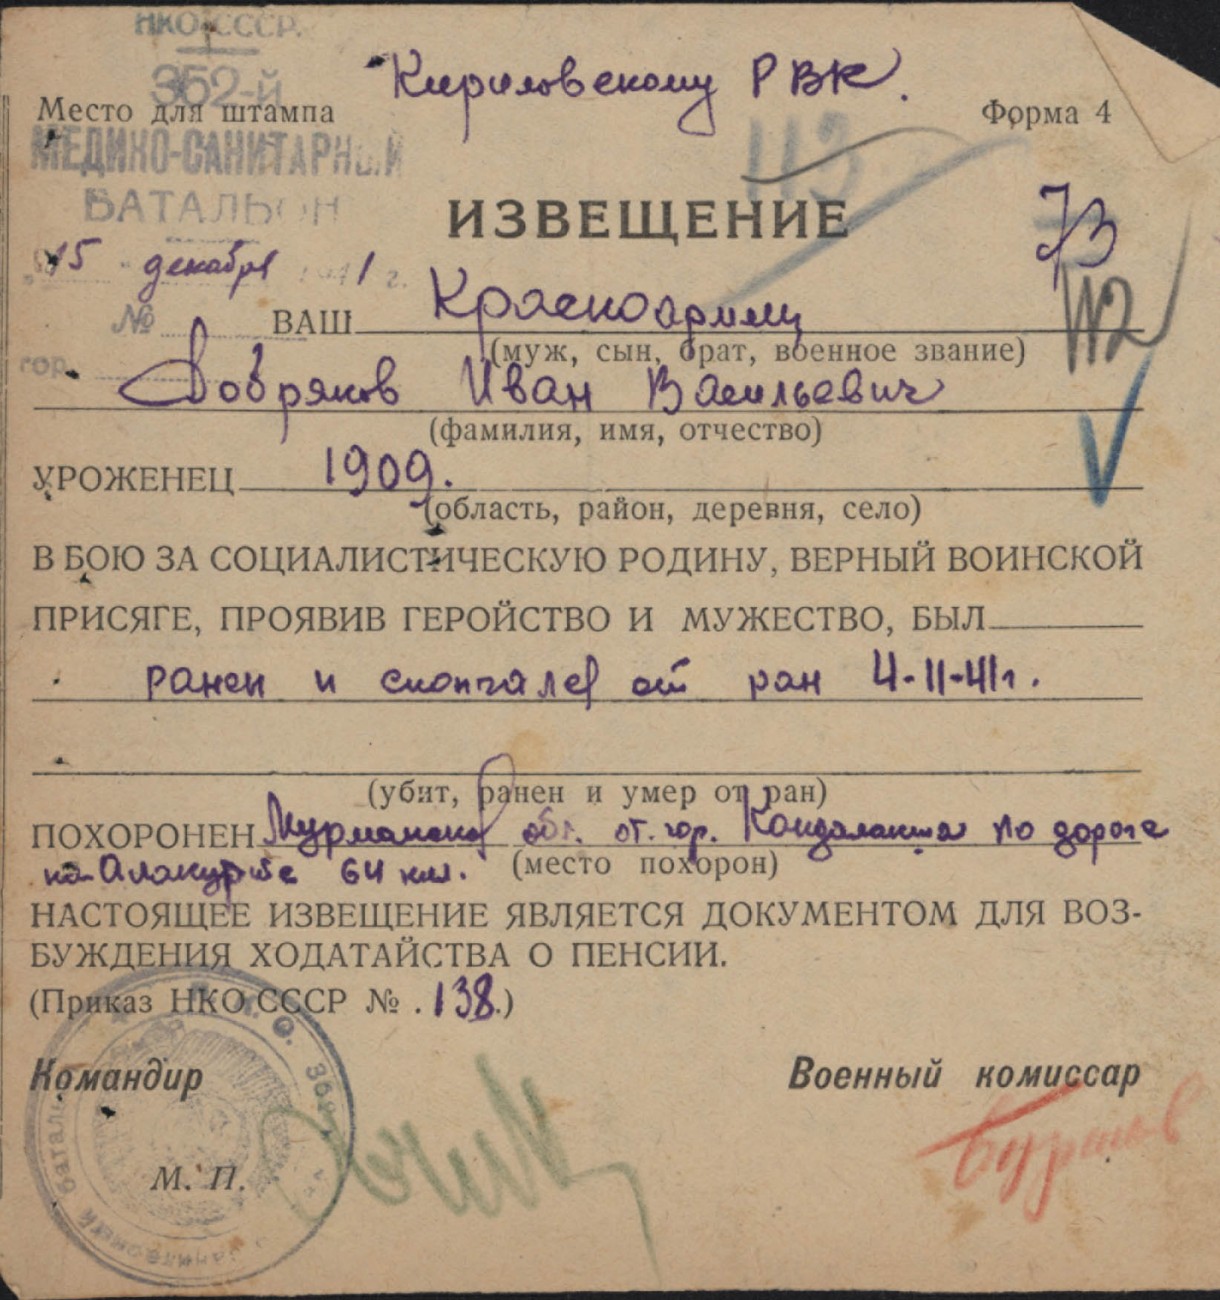 НКО СССР.
Кириловскому РВК.
352-й
Место для штампа
Форма 4
113
МЕДИКО-САНИТАРНЫЙ
БАТАЛЬОН
ИЗВЕЩЕНИЕ
73
"15" декабря 1941 г.
112
№ ВАШ Красноармеец
(муж, сын, брат, военное звание)
гор.
Добряков Иван Васильевич
(фамилия, имя, отчество)
УРОЖЕНЕЦ 1909.
(область, район, деревня, село)
В БОЮ ЗА СОЦИАЛИСТИЧЕСКУЮ РОДИНУ, ВЕРНЫЙ ВОИНСКОЙ
ПРИСЯГЕ, ПРОЯВИВ ГЕРОЙСТВО И МУЖЕСТВО, БЫЛ
ранен и скончался от ран 4-11-41г.
(убит, ранен и умер от ран)
ПОХОРОНЕН Мурманской обл. от. гор. Кондалакша по дороге
на Алакуртте 64 клм. (место похорон)
НАСТОЯЩЕЕ ИЗВЕЩЕНИЕ ЯВЛЯЕТСЯ ДОКУМЕНТОМ ДЛЯ ВОЗ-
БУЖДЕНИЯ ХОДАТАЙСТВА О ПЕНСИИ.
(Приказ НКО СССР № .138.)
Командир Военный комиссар
М. П.